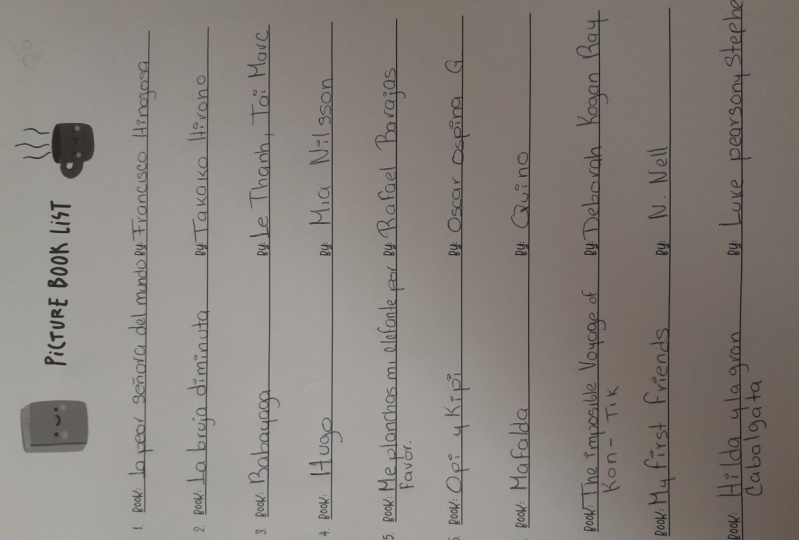 PICTURE BOOK LIST
1. BOOK: La peor señora del mundo BY: Francisco Hinogosa
2. BOOK: La bruja diminuta BY: Takako Hirono
3. BOOK: Babayaga BY: Le Thanh, Tai Marc
4. BOOK: Hugo BY: Mia Nilsson
5. BOOK: Me planchas mi elefante por BY: Rafael Barajas
Favor.
BOOK: Opi y Kipi BY: Oscar ospina G
BOOK: Mafalda BY: Quino
BOOK: The imposible Voyage of BY: Deborah Kogan Ray
Kon-Tik
BOOK: My first Friends BY: N. Nell
BOOK: Hilda y la gran BY: Luke pearson y Stephe
Cabalgata